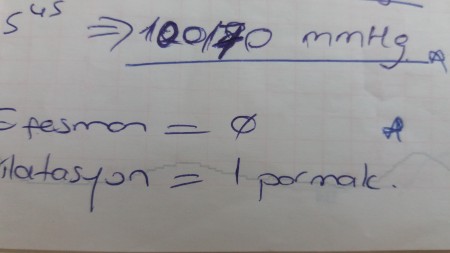 5⁴⁵ ⇒ 100/70 mmHg
Efesman = Ø
ilatasyon = 1 parmak.